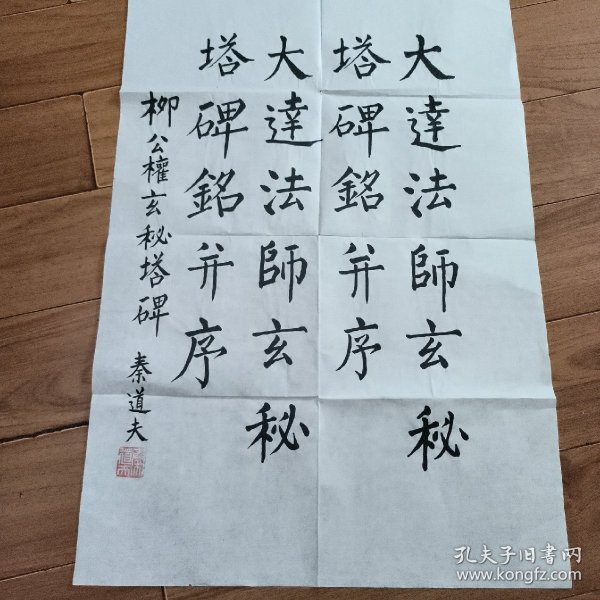 大達法師玄秘
塔碑銘并序
大達法師玄秘
塔碑銘并序
柳公權玄秘塔碑
秦道夫
孔夫子旧書网
www.kongfz.com